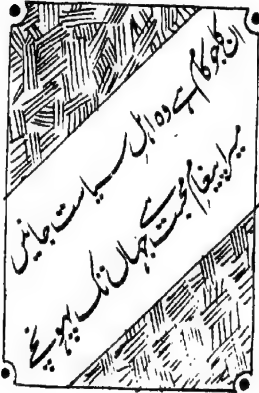 ان کا جو کام ہے وہ اہلِ سیاست جانیں
میرا پیغام محبت ہے جہاں تک پہونچے